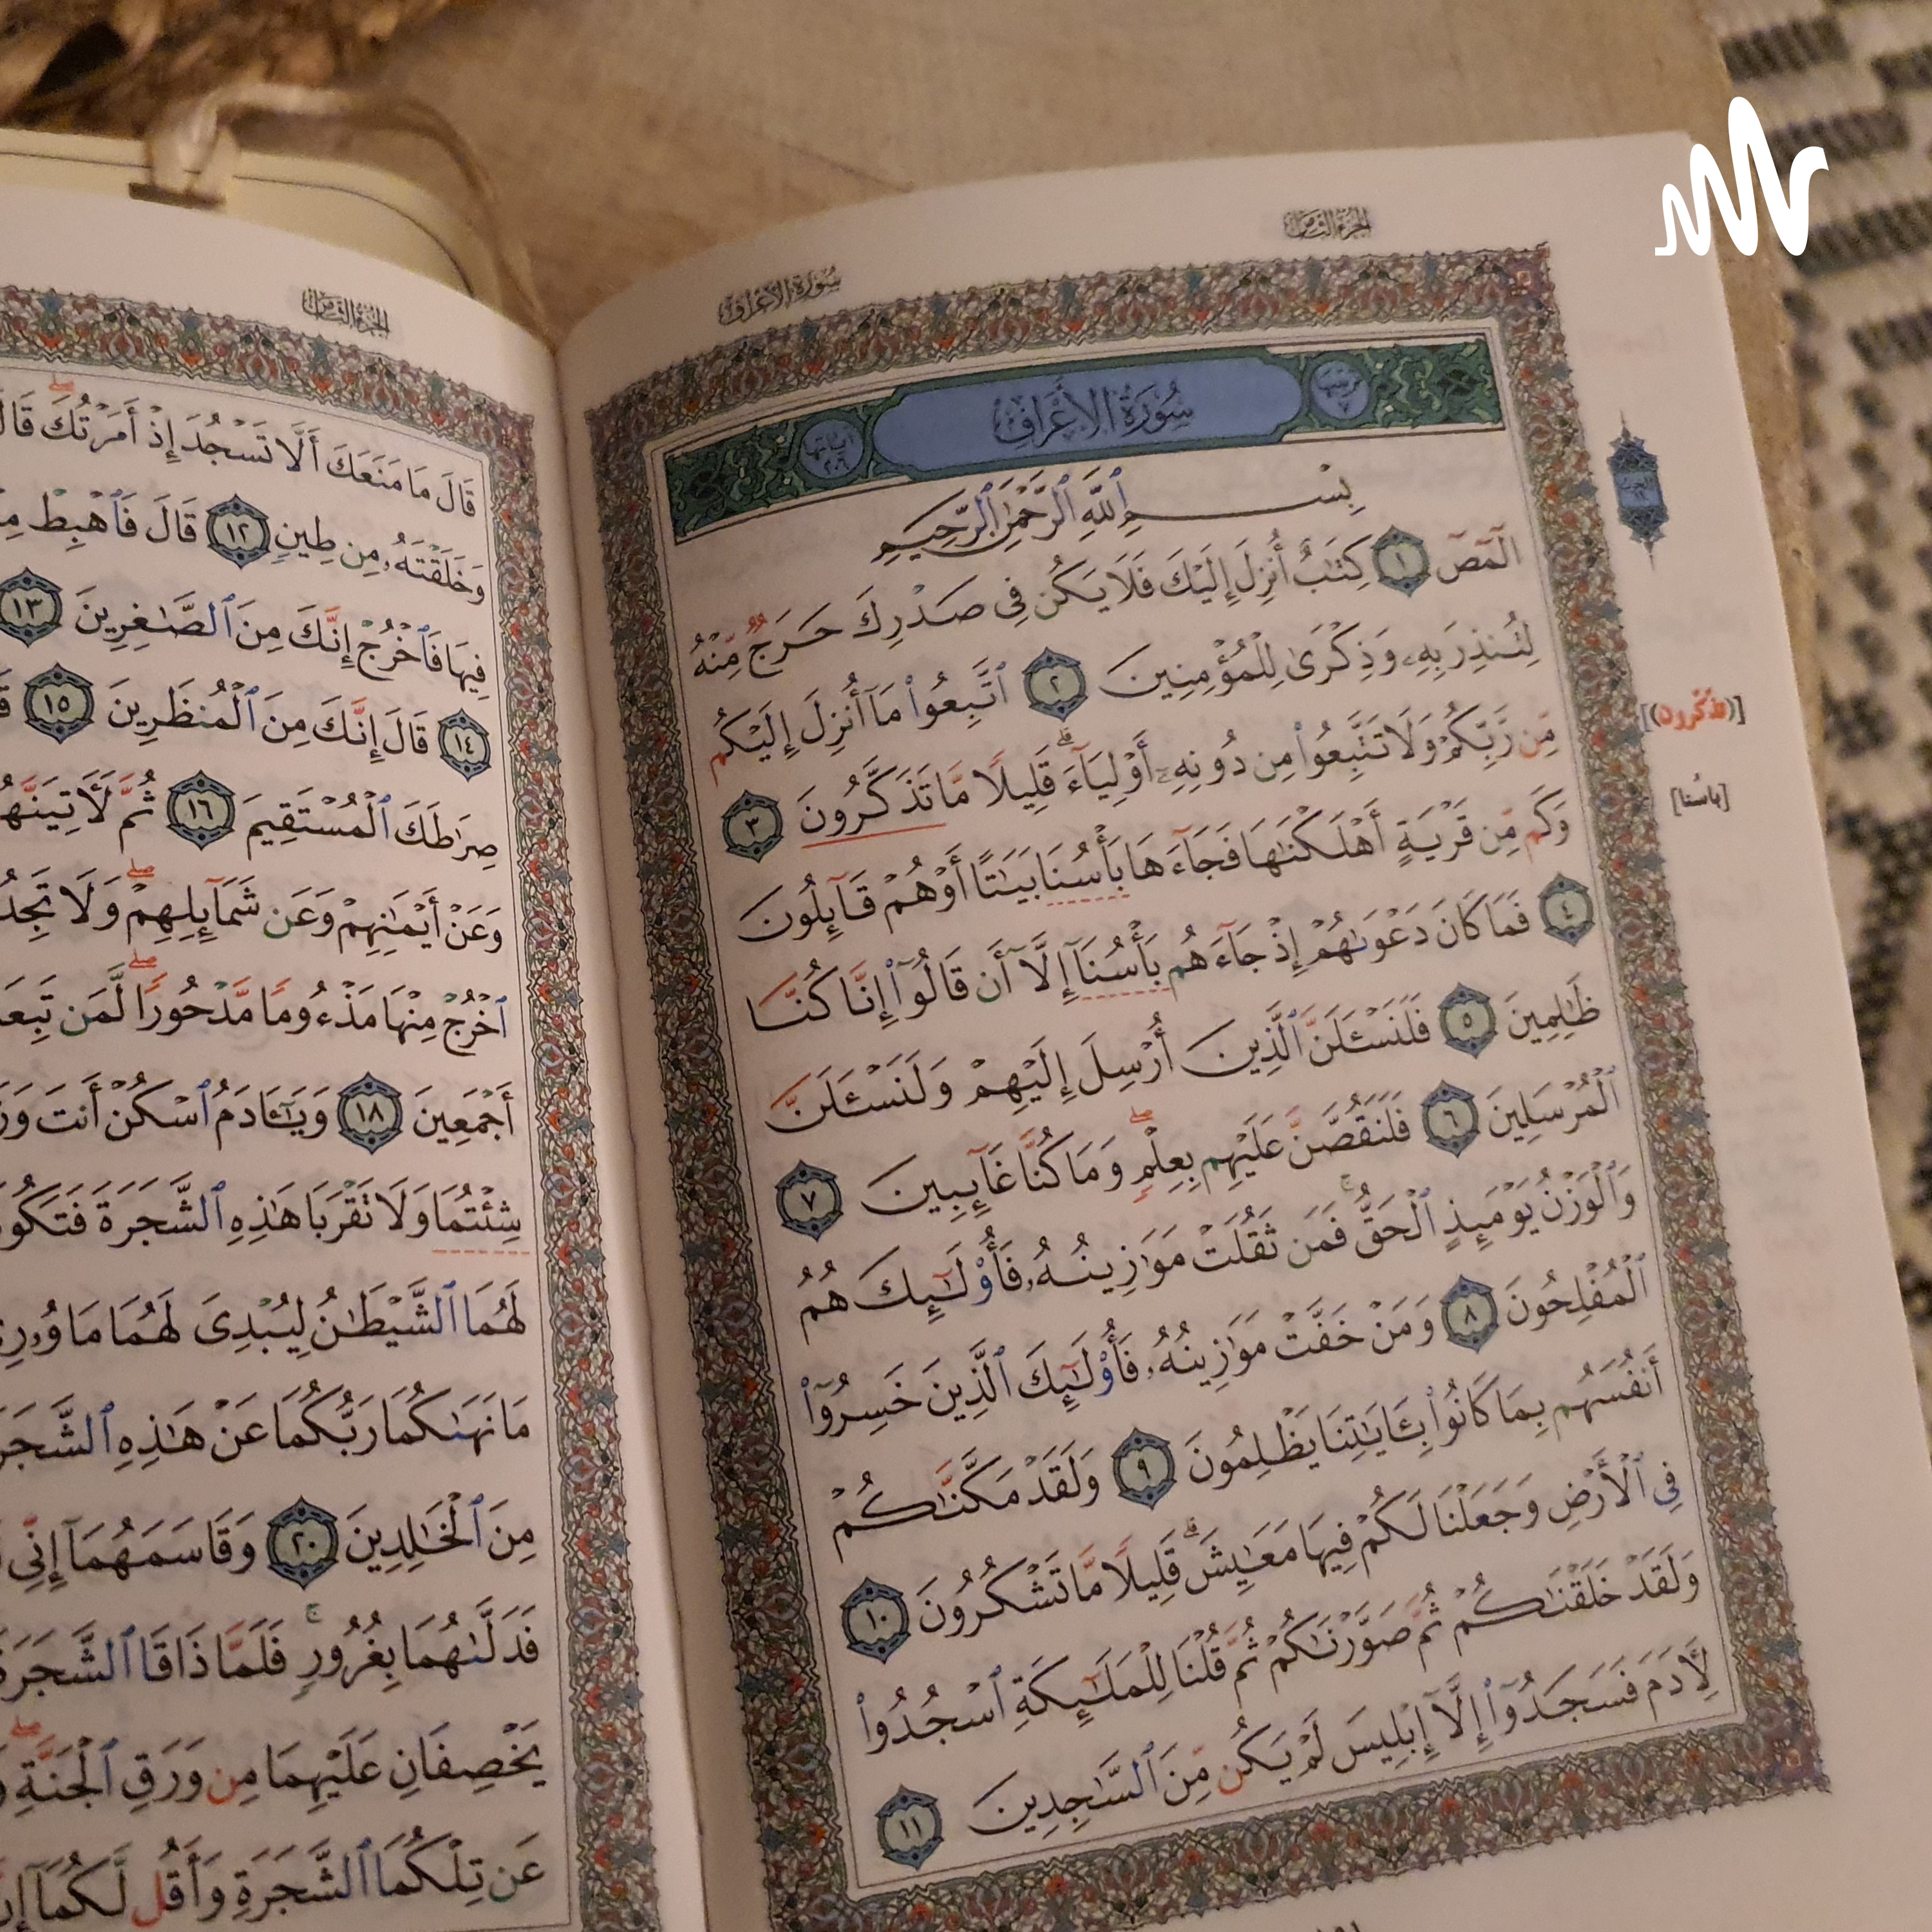 الجزء الثامن سورة الأعراف
ترتيبها ٧ سُورَةُ الأَعْرَافِ آياتها ٢٠٦
بِسْمِ ٱللَّهِ ٱلرَّحْمَٰنِ ٱلرَّحِيمِ
الٓمٓصٓ ١ كِتَٰبٌ أُنزِلَ إِلَيْكَ فَلَا يَكُن فِي صَدْرِكَ حَرَجٌ مِّنْهُ
لِتُنذِرَ بِهِۦ وَذِكْرَىٰ لِلْمُؤْمِنِينَ ٢ ٱتَّبِعُوا۟ مَآ أُنزِلَ إِلَيْكُم
مِّن رَّبِّكُمْ وَلَا تَتَّبِعُوا۟ مِن دُونِهِۦٓ أَوْلِيَآءَ ۗ قَلِيلًا مَّا تَذَكَّرُونَ ٣
وَكَم مِّن قَرْيَةٍ أَهْلَكْنَٰهَا فَجَآءَهَا بَأْسُنَا بَيَٰتًا أَوْ هُمْ قَآئِلُونَ
٤ فَمَا كَانَ دَعْوَىٰهُمْ إِذْ جَآءَهُم بَأْسُنَآ إِلَّآ أَن قَالُوٓا۟ إِنَّا كُنَّا
ظَٰلِمِينَ ٥ فَلَنَسْـَٔلَنَّ ٱلَّذِينَ أُرْسِلَ إِلَيْهِمْ وَلَنَسْـَٔلَنَّ
ٱلْمُرْسَلِينَ ٦ فَلَنَقُصَّنَّ عَلَيْهِم بِعِلْمٍ ۖ وَمَا كُنَّا غَآئِبِينَ ٧
وَٱلْوَزْنُ يَوْمَئِذٍ ٱلْحَقُّ ۚ فَمَن ثَقُلَتْ مَوَٰزِينُهُۥ فَأُو۟لَٰٓئِكَ هُمُ
ٱلْمُفْلِحُونَ ٨ وَمَنْ خَفَّتْ مَوَٰزِينُهُۥ فَأُو۟لَٰٓئِكَ ٱلَّذِينَ خَسِرُوٓا۟
أَنفُسَهُم بِمَا كَانُوا۟ بِـَٔايَٰتِنَا يَظْلِمُونَ ٩ وَلَقَدْ مَكَّنَّٰكُمْ
فِي ٱلْأَرْضِ وَجَعَلْنَا لَكُمْ فِيهَا مَعَٰيِشَ ۗ قَلِيلًا مَّا تَشْكُرُونَ ١٠
وَلَقَدْ خَلَقْنَٰكُمْ ثُمَّ صَوَّرْنَٰكُمْ ثُمَّ قُلْنَا لِلْمَلَٰٓئِكَةِ ٱسْجُدُوا۟
لِـَٔادَمَ فَسَجَدُوٓا۟ إِلَّآ إِبْلِيسَ لَمْ يَكُن مِّنَ ٱلسَّٰجِدِينَ ١١
[باسُنا]
الجزء الثامن
قَالَ مَا مَنَعَكَ أَلَّا تَسْجُدَ إِذْ أَمَرْتُكَ ۖ قَالَ
وَخَلَقْتَهُۥ مِن طِينٍ ١٢ قَالَ فَٱهْبِطْ
فِيهَا فَٱخْرُجْ إِنَّكَ مِنَ ٱلصَّٰغِرِينَ ١٣
١٤ قَالَ إِنَّكَ مِنَ ٱلْمُنظَرِينَ ١٥
صِرَٰطَكَ ٱلْمُسْتَقِيمَ ١٦ ثُمَّ لَـَٔاتِيَنَّهُ
وَعَنْ أَيْمَٰنِهِمْ وَعَن شَمَآئِلِهِمْ ۖ وَلَا تَجِدُ
ٱخْرُجْ مِنْهَا مَذْءُومًا مَّدْحُورًا ۖ لَّمَن تَبِعَ
أَجْمَعِينَ ١٨ وَيَٰٓـَٔادَمُ ٱسْكُنْ أَنتَ وَزَ
شِئْتُمَا وَلَا تَقْرَبَا هَٰذِهِ ٱلشَّجَرَةَ فَتَكُو
لَهُمَا ٱلشَّيْطَٰنُ لِيُبْدِيَ لَهُمَا مَا وُۥرِ
مَا نَهَىٰكُمَا رَبُّكُمَا عَنْ هَٰذِهِ ٱلشَّجَرَ
مِنَ ٱلْخَٰلِدِينَ ٢٠ وَقَاسَمَهُمَآ إِنِّي
فَدَلَّىٰهُمَا بِغُرُورٍ ۚ فَلَمَّا ذَاقَا ٱلشَّجَرَةَ
يَخْصِفَانِ عَلَيْهِمَا مِن وَرَقِ ٱلْجَنَّةِ ۖ
عَن تِلْكُمَا ٱلشَّجَرَةِ وَأَقُل لَّكُمَآ إِنَّ